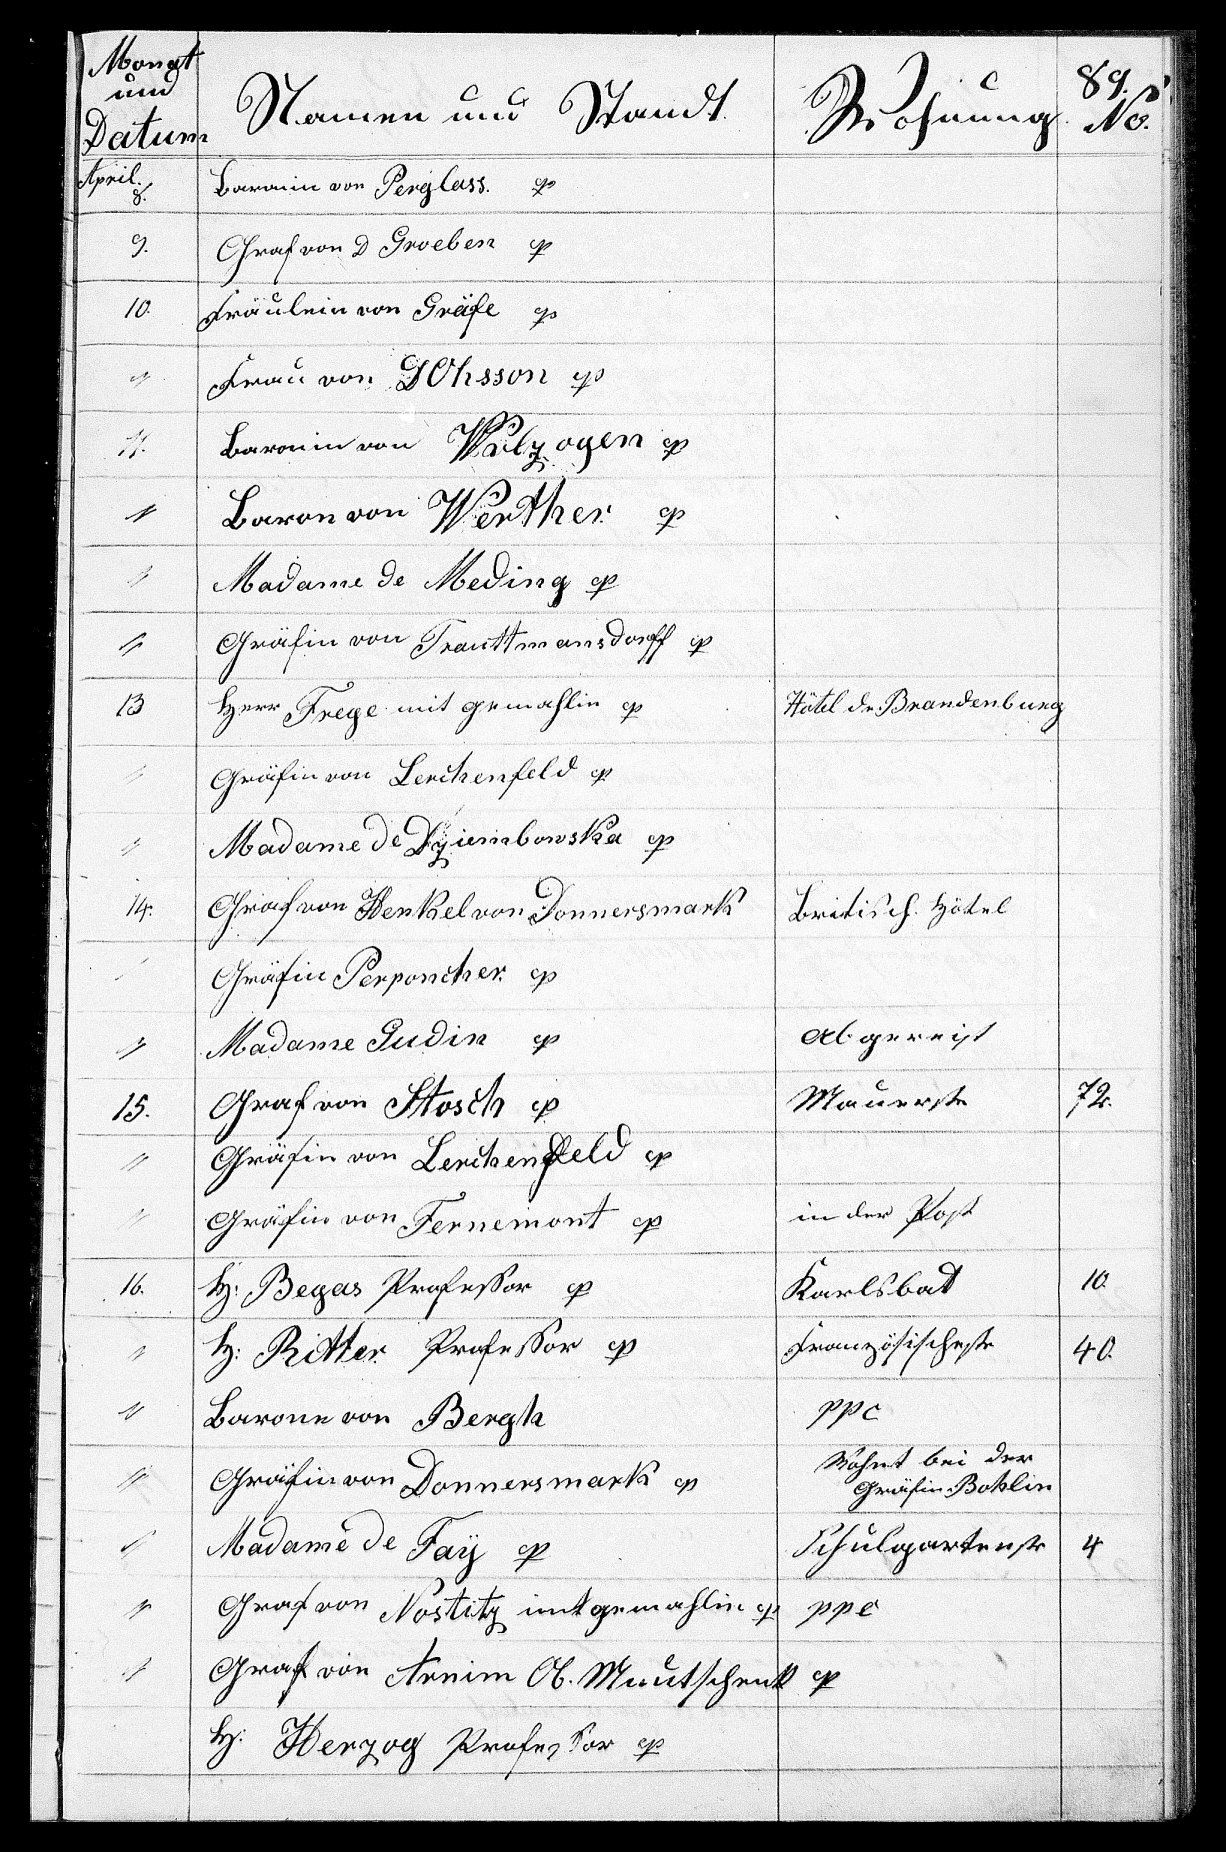 89.
Monat und Datum Namen und Standt. Wohnung. No.
April. 8. Baronin von Perglass. p
9. Graf von D Groeben p
10. Fräulein von Gräfe p
" Frau von D'Ohsson p
11. Baronin von Wolzogen p
" Baron von Werther. p
" Madame de Meding p
" Gräfin von Trauttmansdorff p
13 Herr Frege mit gemahlin p Hôtel de Brandenburg
" Gräfin von Lerchenfeld p
" Madame de Dziembowska p
14. Graf von Henkel von Donnersmark Britisch. Hôtel
" Gräfin Perponcher. p
" Madame Gudin p Abgereist
15. Graf von Stosch p Mauerstr 72.
" Gräfin von Lerchenfeld p
" Gräfin von Fernemont p in der Post
16. H: Begas Professor p Karlsbad 10.
" H: Ritter. Professor p Französischestr 40.
" Barone von Bergh ppc
" Gräfin von Donnersmark p Wohnt bei der
Gräfin Bohlin
" Madame de Fay p Schulgartenstr 4
" Graf von Nostitz mit gemahlin p ppc
" Graf von Arnim Ob. Mundtschenk p
H: Herzog Professor p